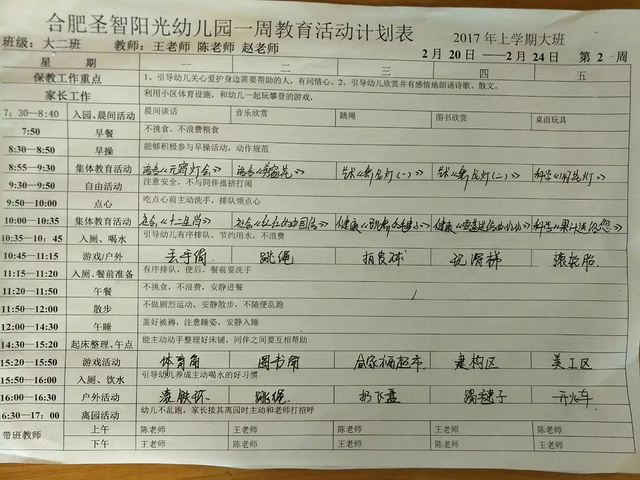 合肥圣智阳光幼儿园一周教育活动计划表 2017年上学期大班
班级：大二班 教师：王老师 陈老师 赵老师 2月20日——2月24日 第2周
星期 一 二 三 四 五
保教工作重点 1、引导幼儿关心爱护身边需要帮助的人，有同情心。2、引导幼儿欣赏并有感情地朗诵诗歌、散文。
家长工作 利用小区体育设施，和幼儿一起玩攀登的游戏。
7:30—8:40 入园、晨间活动 晨间谈话 音乐欣赏 跳绳 图书欣赏 桌面玩具
7:50 早餐 不挑食、不浪费粮食
8:30—8:50 早操 能够积极参与早操活动、动作规范
8:55—9:30 集体教育活动 语言《元宵灯会》 语言 艺术《新花灯(一)》 艺术《新花灯(二)》 科学
9:30—9:50 自由活动 注意安全，不与同伴推挤打闹
9:50—10:00 点心 吃点心前主动洗手，排队领点心
10:00—10:35 集体教育活动 社会《十二生肖》 社会《红红的中国结》 健康 健康 科学
10:35—10:45 入厕、喝水 引导幼儿有序排队，节约用水，不浪费
10:45—11:15 游戏/户外 丢手绢 跳绳 拍皮球 玩滑梯 滚轮胎
11:15—11:20 入厕、餐前准备 有序排队，便后、餐前要洗手
11:20—11:50 午餐 不挑食，不浪费，安静进餐
11:50—12:00 散步 不做剧烈运动，安静散步，不随便乱跑
12:00—14:30 午睡 盖好被褥，注意睡姿，安静入睡
14:30—15:20 起床整理、午点 能主动动手整理好床铺，同伴之间要互相帮助
15:20—15:50 游戏活动 体育角 图书角 超市 建构区 美工区
15:50—16:00 入厕、饮水 引导幼儿养成主动喝水的好习惯
16:00—16:30 户外活动 滚铁环 跳绳 扔飞盘 踢毽子 开火车
6:30—17:00 离园活动 幼儿不乱跑，家长接其离园时主动和老师打招呼
带班教师 上午 陈老师 王老师 陈老师 王老师 陈老师
下午 王老师 陈老师 王老师 陈老师 王老师